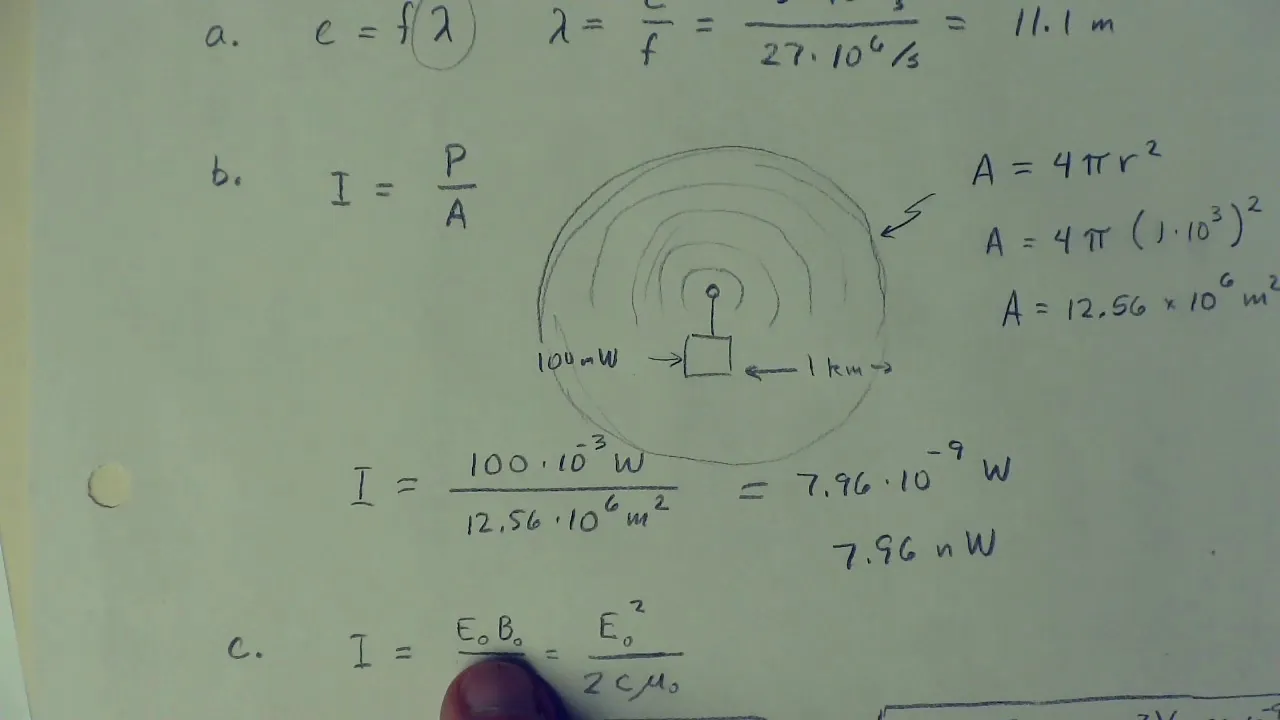 a. c = f(λ) λ = c/f = / 27·10⁶/s = 11.1 m
b. I = P/A
A = 4πr²
A = 4π (1·10³)²
A = 12.56 × 10⁶ m²
100mW → ← 1 km →
I = 100·10⁻³ W / 12.56·10⁶ m² = 7.96·10⁻⁹ W
7.96 nW
c. I = E₀B₀ / = E₀² / 2cμ₀